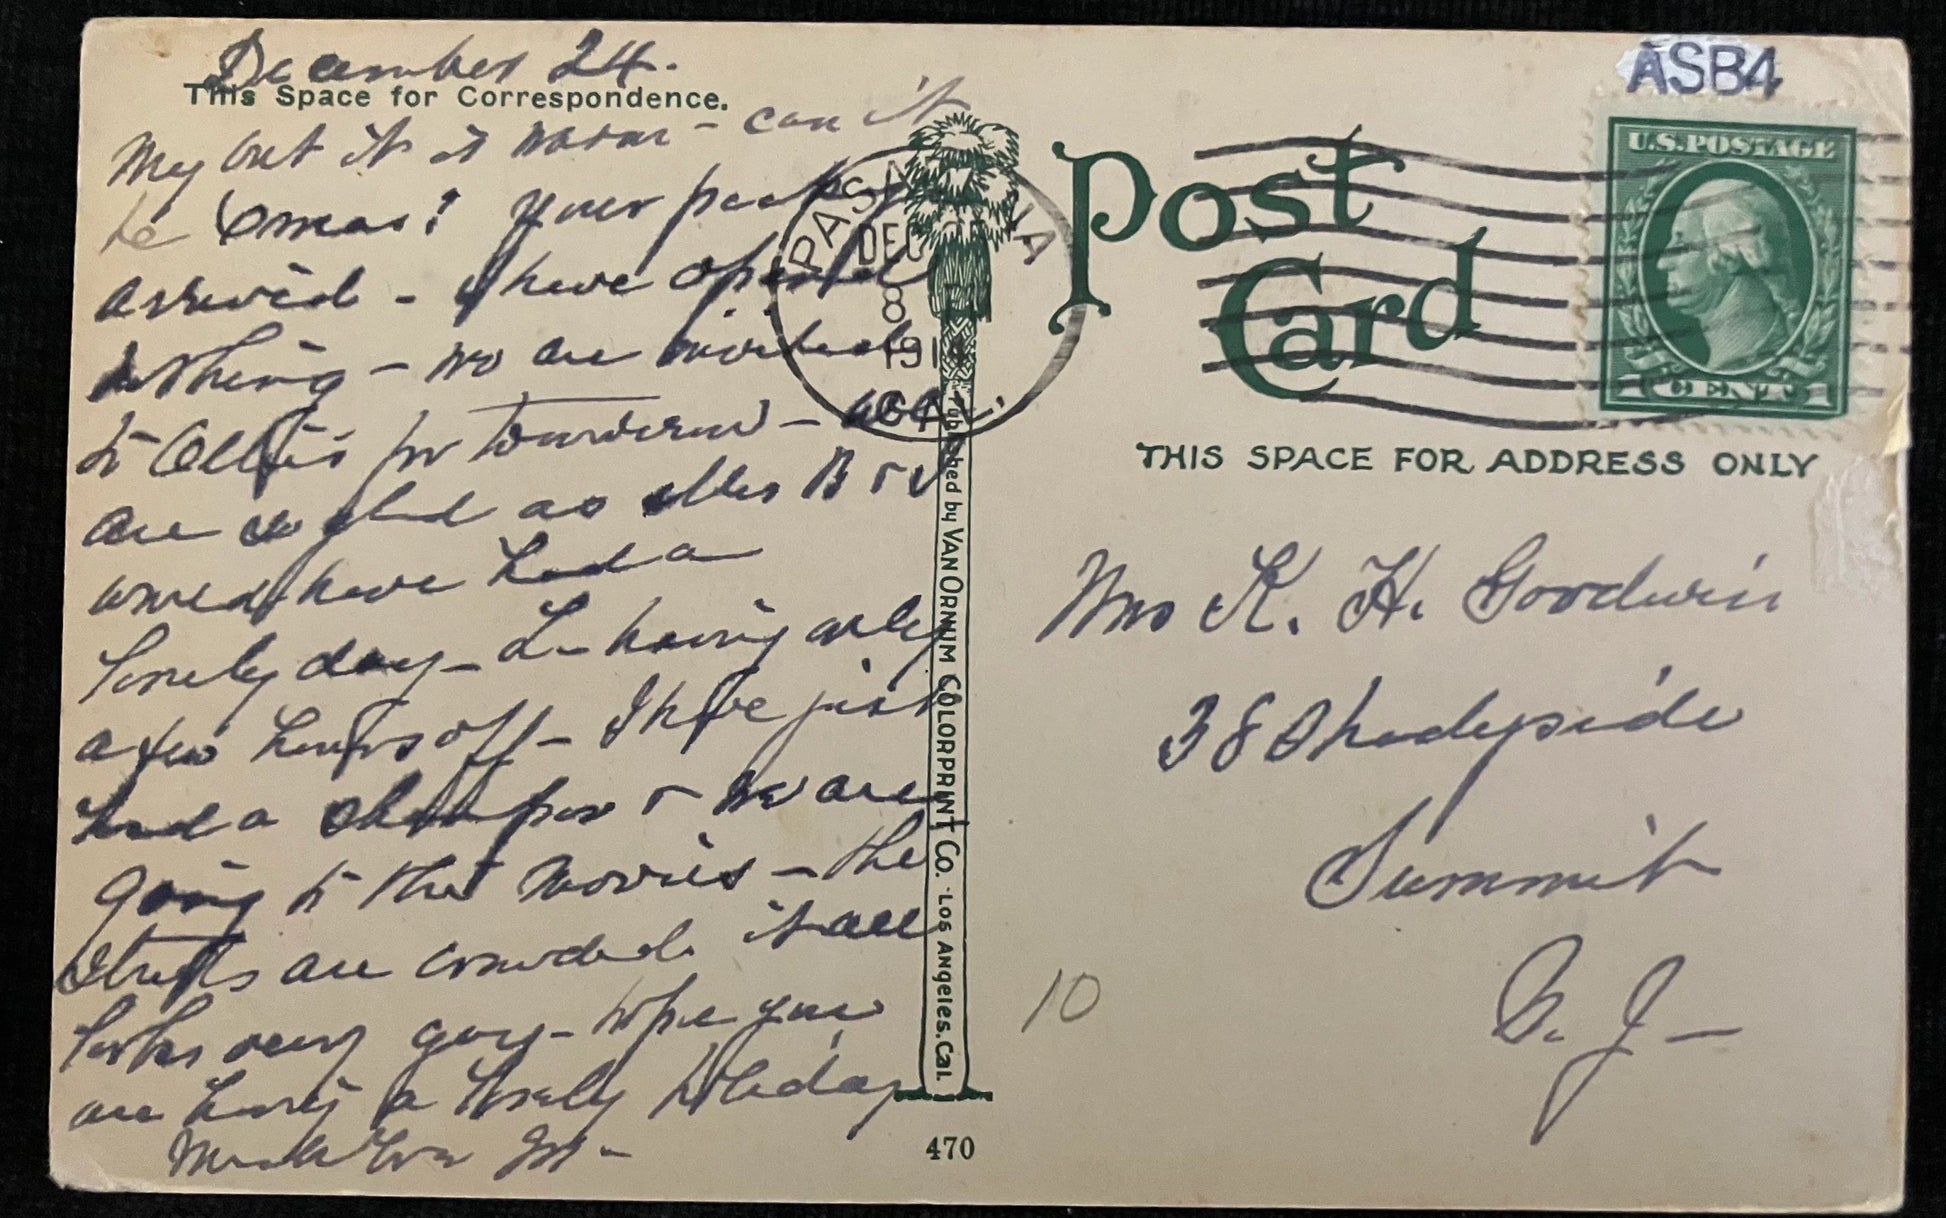 December 24.
This Space for Correspondence.
My but it is warm - can it
be Xmas? Your package
arrived - I have opened
nothing - we are invited
to Ollie's for tomorrow - we
are so glad as Mrs B & I
would have had a
lonely day -
having only
a few hours off - I have just
had a shampoo & we are
going to the movies - the
streets are crowded it all
looks very gay - hope you
are having a lovely holiday
Much love
PASADENA
DEC
8
191
CAL.
Post
Card
ASB4
U.S. POSTAGE
CENTS
THIS SPACE FOR ADDRESS ONLY
Mrs K. H. Goodwin
38 Shadyside
Summit
N. J -
10
Published by VAN ORNUM COLORPRINT CO. LOS ANGELES, CAL.
470